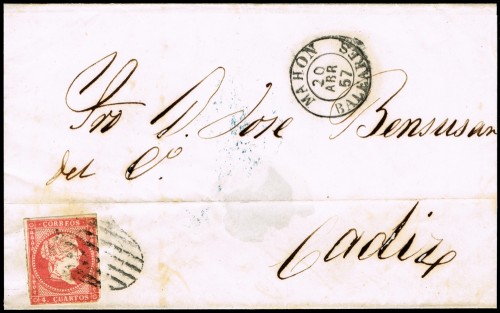 MAHON
20
ABR
57
BALEARES
Sr. D. Jose Bensusan
del C.º
Cadiz
CORREOS
4 CUARTOS